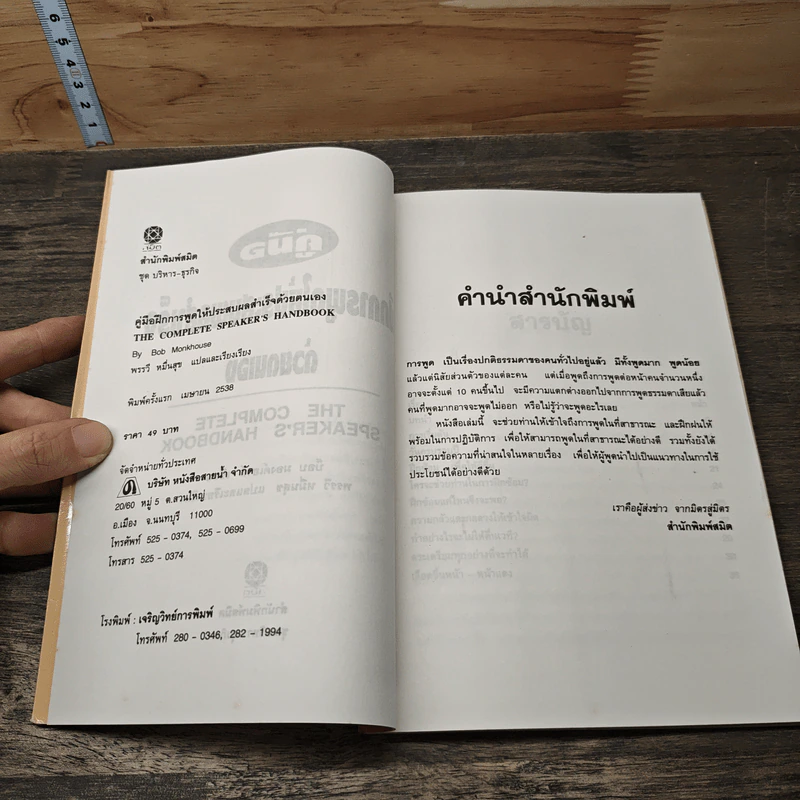 6 5 4 3 2 1
สมิต
สำนักพิมพ์สมิต
ชุด บริหาร-ธุรกิจ
คู่มือฝึกการพูดให้ประสบผลสำเร็จด้วยตนเอง
THE COMPLETE SPEAKER'S HANDBOOK
By Bob Monkhouse
พรรวี หมื่นสุข แปลและเรียงเรียง
พิมพ์ครั้งแรก เมษายน 2538
ราคา 49 บาท
จัดจำหน่ายทั่วประเทศ
บริษัท หนังสือสายน้ำ จำกัด
20/60 หมู่ 5 ต.สวนใหญ่
อ.เมือง จ.นนทบุรี 11000
โทรศัพท์ 525 - 0374, 525 - 0699
โทรสาร 525 - 0374
โรงพิมพ์ : เจริญวิทย์การพิมพ์
โทรศัพท์ 280 - 0346, 282 - 1994
คำนำสำนักพิมพ์
การพูด เป็นเรื่องปกติธรรมดาของคนทั่วไปอยู่แล้ว มีทั้งพูดมาก พูดน้อย
แล้วแต่นิสัยส่วนตัวของแต่ละคน แต่เมื่อพูดถึงการพูดต่อหน้าคนจำนวนหนึ่ง
อาจจะตั้งแต่ 10 คนขึ้นไป จะมีความแตกต่างออกไปจากการพูดธรรมดาเสียแล้ว
คนที่พูดมากอาจจะพูดไม่ออก หรือไม่รู้ว่าจะพูดอะไรเลย
หนังสือเล่มนี้ จะช่วยท่านให้เข้าใจถึงการพูดในที่สาธารณะ และฝึกฝนให้
พร้อมในการปฏิบัติการ เพื่อให้สามารถพูดในที่สาธารณะได้อย่างดี รวมทั้งยังได้
รวบรวมข้อความที่น่าสนใจในหลายเรื่อง เพื่อให้ผู้พูดนำไปเป็นแนวทางในการใช้
ประโยชน์ได้อย่างดีด้วย
เราคือผู้ส่งข่าว จากมิตรสู่มิตร
สำนักพิมพ์สมิต